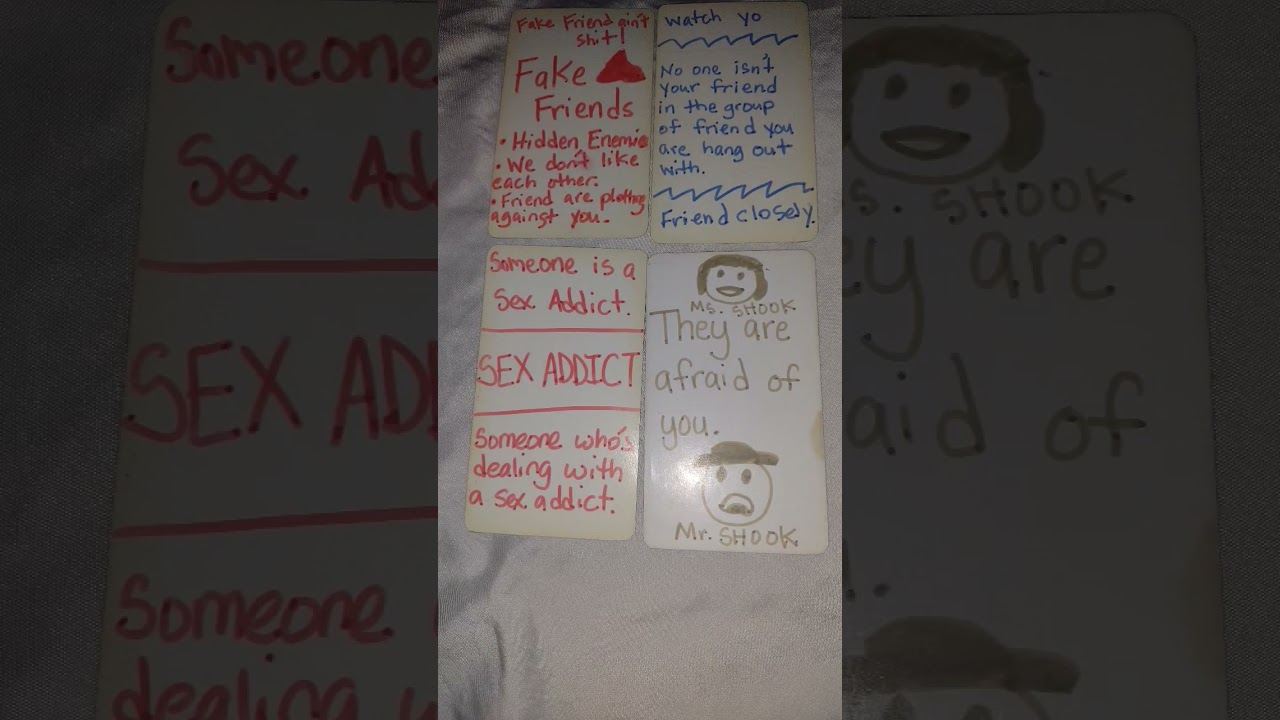 Fake Friend ain't
shit!
Fake
Friends
• Hidden Enemie
• We don't like
each other.
• Friend are plotting
against you.
Watch yo
No one isn't
your friend
in the group
of friend you
are hang out
with.
Friend closely.
Someone is a
Sex Addict.
SEX ADDICT
Someone who's
dealing with
a sex addict.
Ms. SHOOK
They are
afraid of
you.
Mr. SHOOK
Someone
Sex Add
SEX AD
Someone
dealing w
s. SHOOK
ey are
aid of